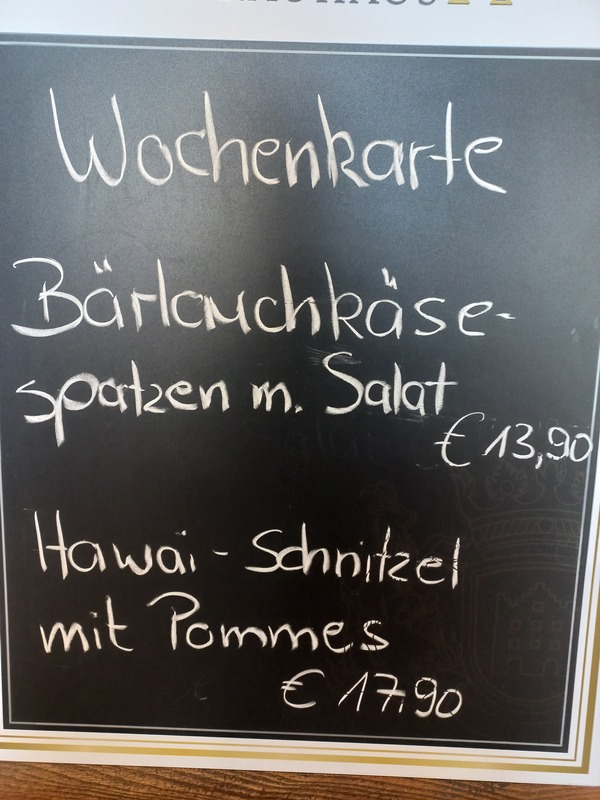 Wochenkarte
Bärlauchkäse-
spatzen m. Salat
€ 13,90
Hawai - Schnitzel
mit Pommes
€ 17,90